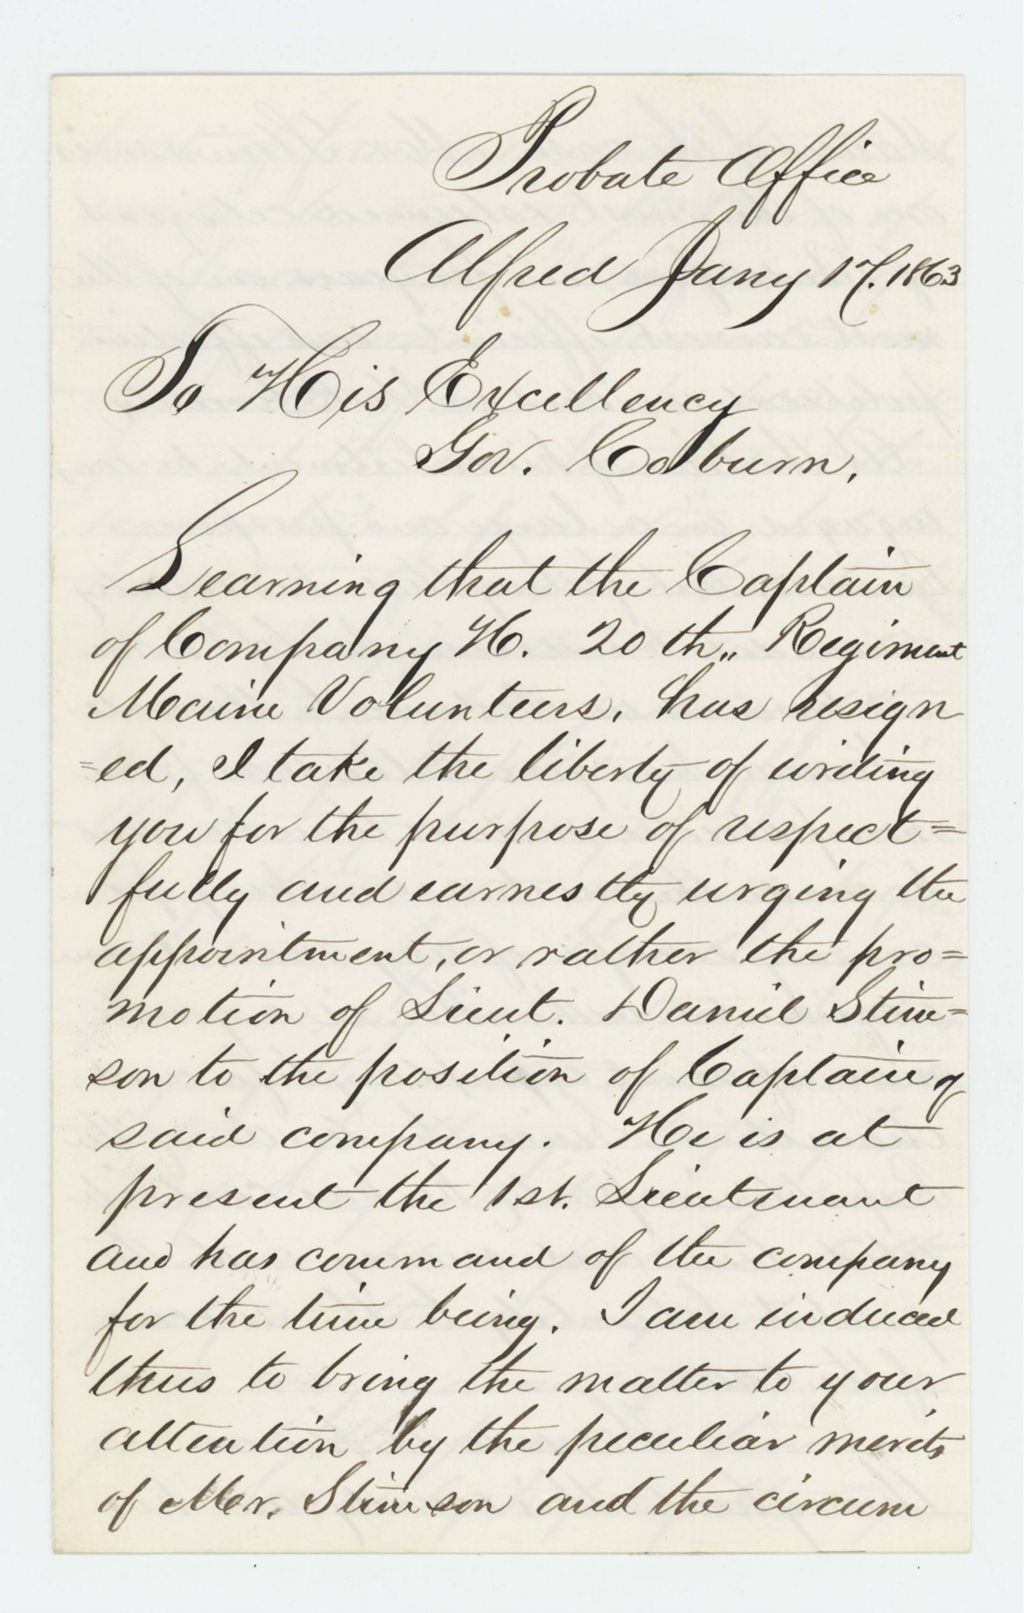 Probate Office
Alfred Jany 17. 1863
To His Excellency
Gov. Coburn,
Learning that the Captain
of Company H. 20th,, Regiment
Maine Volunteers, has resign
=ed, I take the liberty of writing
you for the purpose of respect=
fully and earnestly urging the
appointment, or rather the pro=
motion of Lieut. Daniel Stim=
son to the position of Captain of
said company. He is at
present the 1st. Lieutenant
and has command of the company
for the time being. I am induced
thus to bring the matter to your
attention by the peculiar merits
of Mr. Stimson and the circum